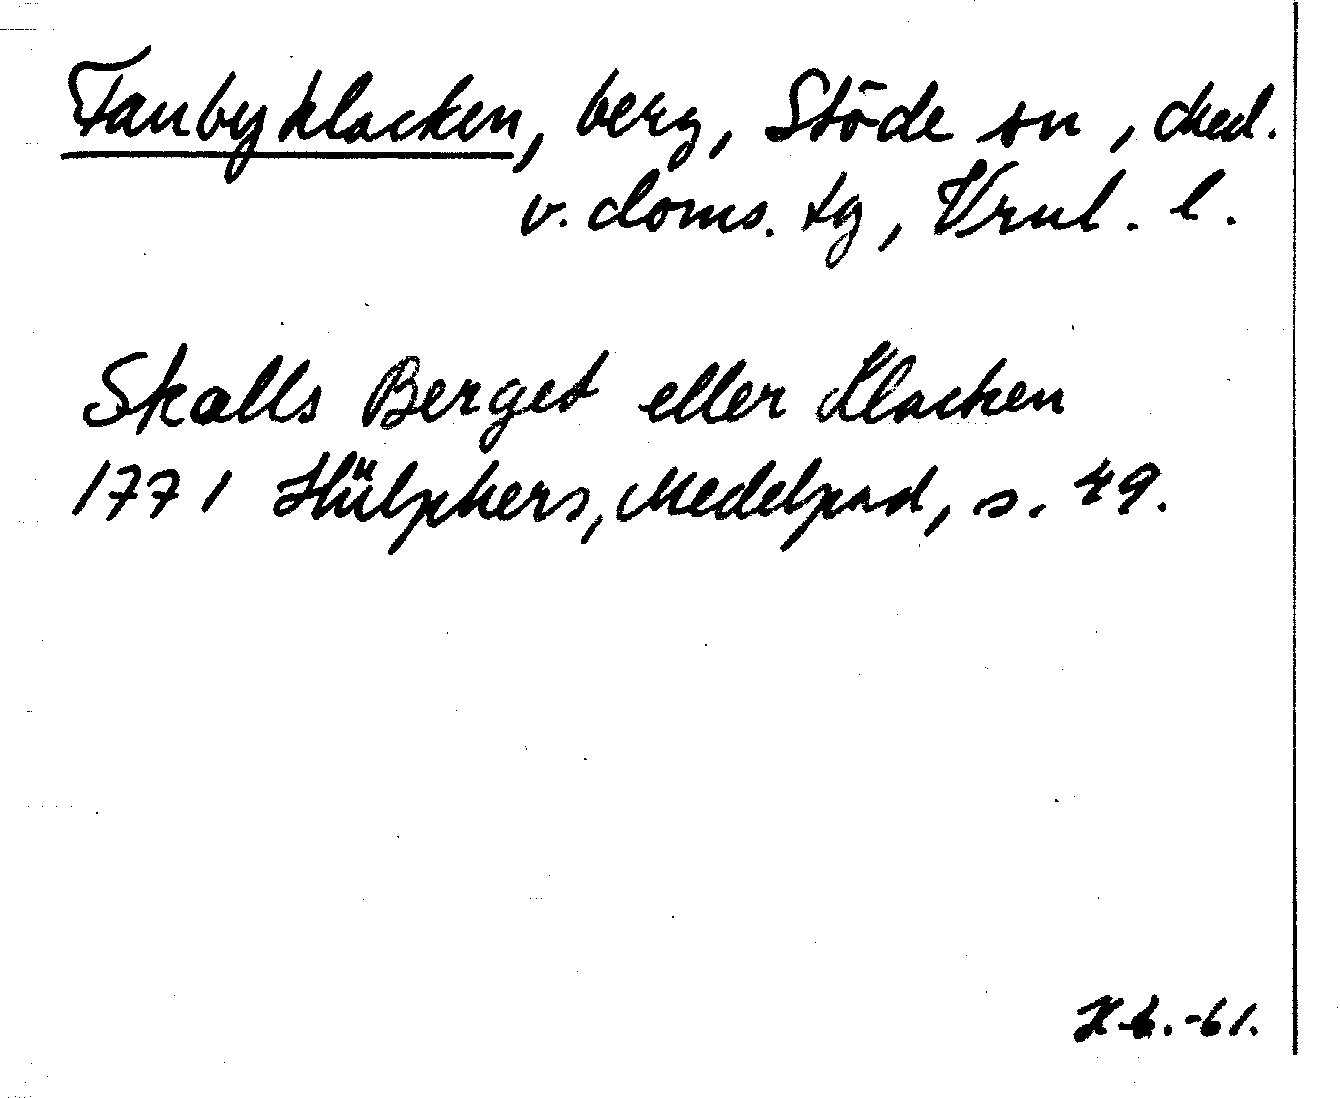 Fanbyklacken, berg, Stöde sn, Med.
v. doms. tg, Vrnl. l.
Skalls Berget eller Klacken
1771 Hülphers, Medelpad, s. 49.
H b. -61.